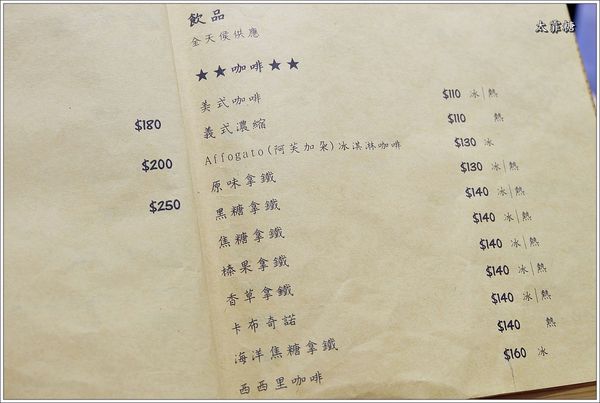 飲品
全天侯供應
★★咖啡★★
美式咖啡 $110 冰|熱
義式濃縮 $110 熱
Affogato(阿芙加朵)冰淇淋咖啡 $130 冰
原味拿鐵 $130 冰|熱
黑糖拿鐵 $140 冰|熱
焦糖拿鐵 $140 冰|熱
榛果拿鐵 $140 冰|熱
香草拿鐵 $140 冰|熱
卡布奇諾 $140 冰|熱
海洋焦糖拿鐵 $140 熱
西西里咖啡 $160 冰
$180
$200
$250